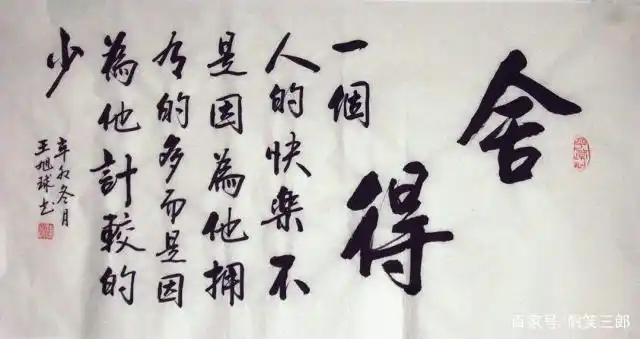 舍
得
一個
人的快樂不
是因為他拥
有的多而是因
為他計較的
少
辛卯冬月
王旭球书
百家号 笑三郎